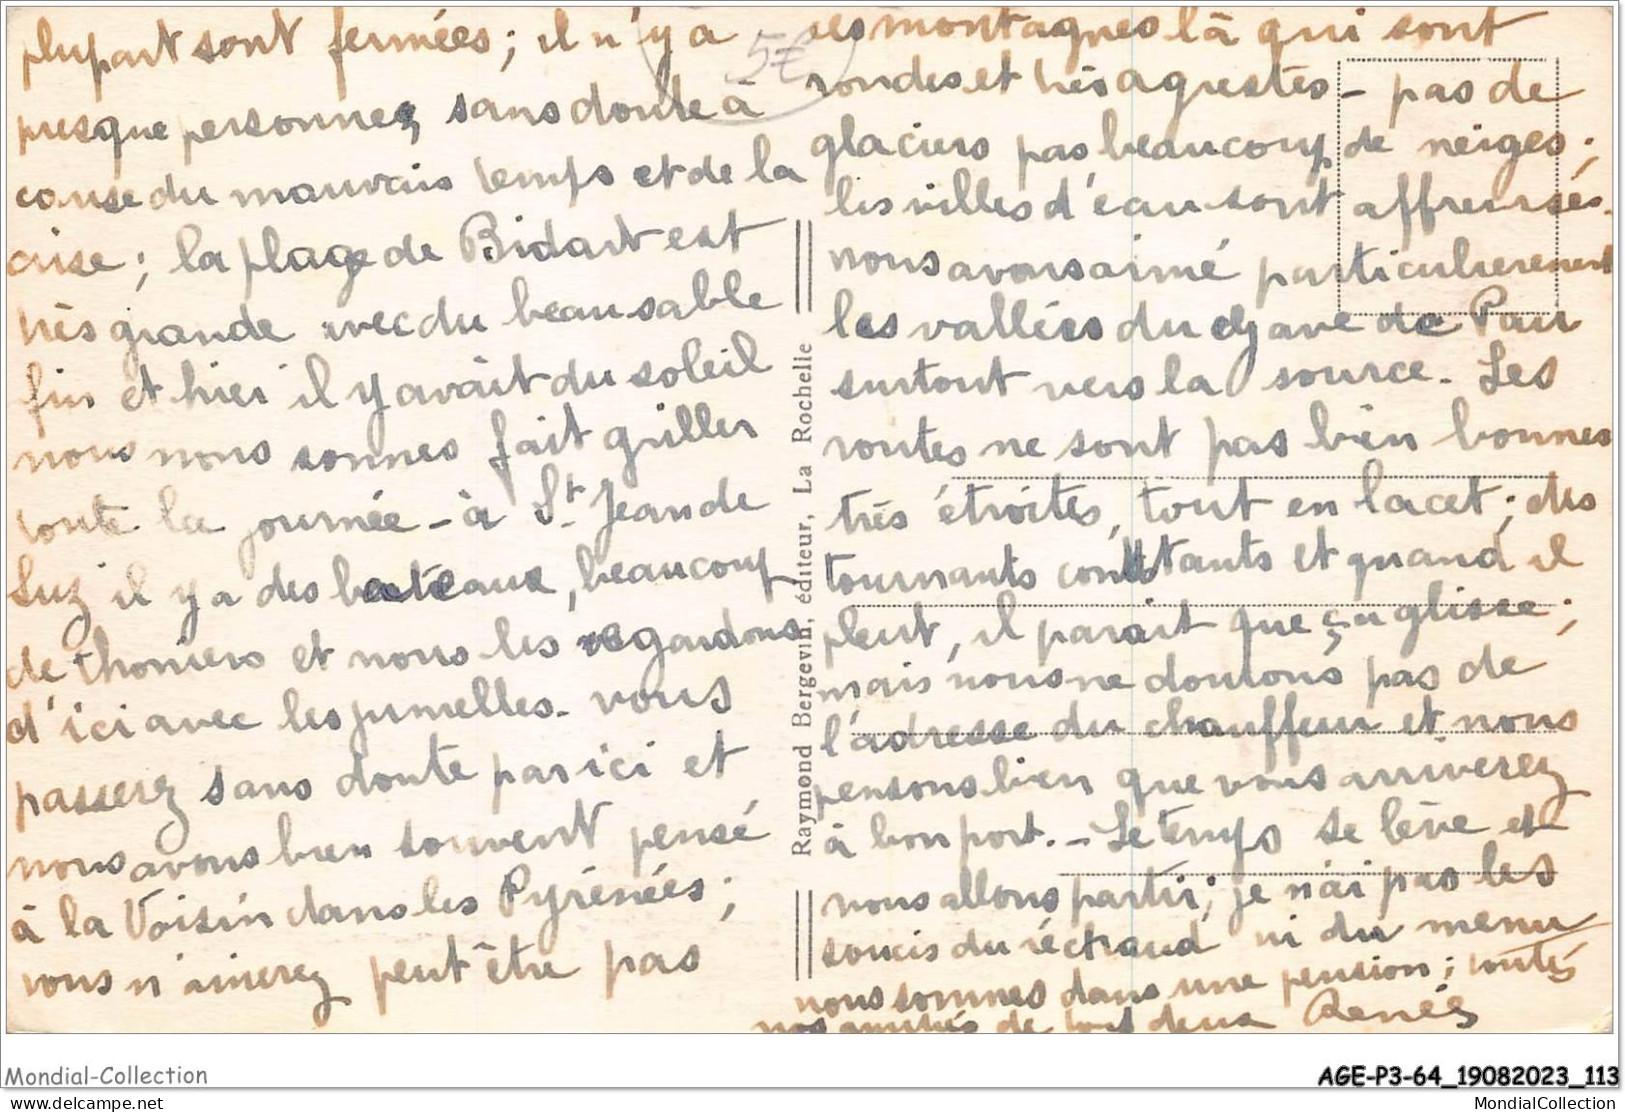 plupart sont fermées ; il n'y a
presque personne, sans doute à
cause du mauvais temps et de la
crise ; la plage de Bidart est
très grande avec du beau sable
fin et hier il y avait du soleil
nous nous sommes fait griller
toute la journée - à St Jean de
Luz il y a des bateaux, beaucoup
de thoniers et nous les regardons
d'ici avec les jumelles. vous
passerez sans doute par ici et
nous avons bien souvent pensé
à la Voisin dans les Pyrénées ;
vous n'aimerez peut être pas
ces montagnes là qui sont
rondes et très agrestes - pas de
glaciers pas beaucoup de neiges ;
les villes d'eau sont affreuses.
nous avons aimé particulierement
les vallées du Gave de Pau
surtout vers la source. Les
routes ne sont pas bien bonnes
très étroites, tout en lacet ; des
tournants constants et quand il
pleut, il parait que ça glisse ;
mais nous ne doutons pas de
l'adresse du chauffeur et nous
pensons bien que vous arriverez
à bon port. - Le temps se lève et
nous allons partir ; je n'ai pas les
soucis du réchaud ni du menu
nous sommes dans une pension ; toutes
nos amitiés de tous deux Renée
5€
Raymond Bergevin, éditeur, La Rochelle
Mondial-Collection
delcampe.net
AGE-P3-64_19082023_113
MondialCollection